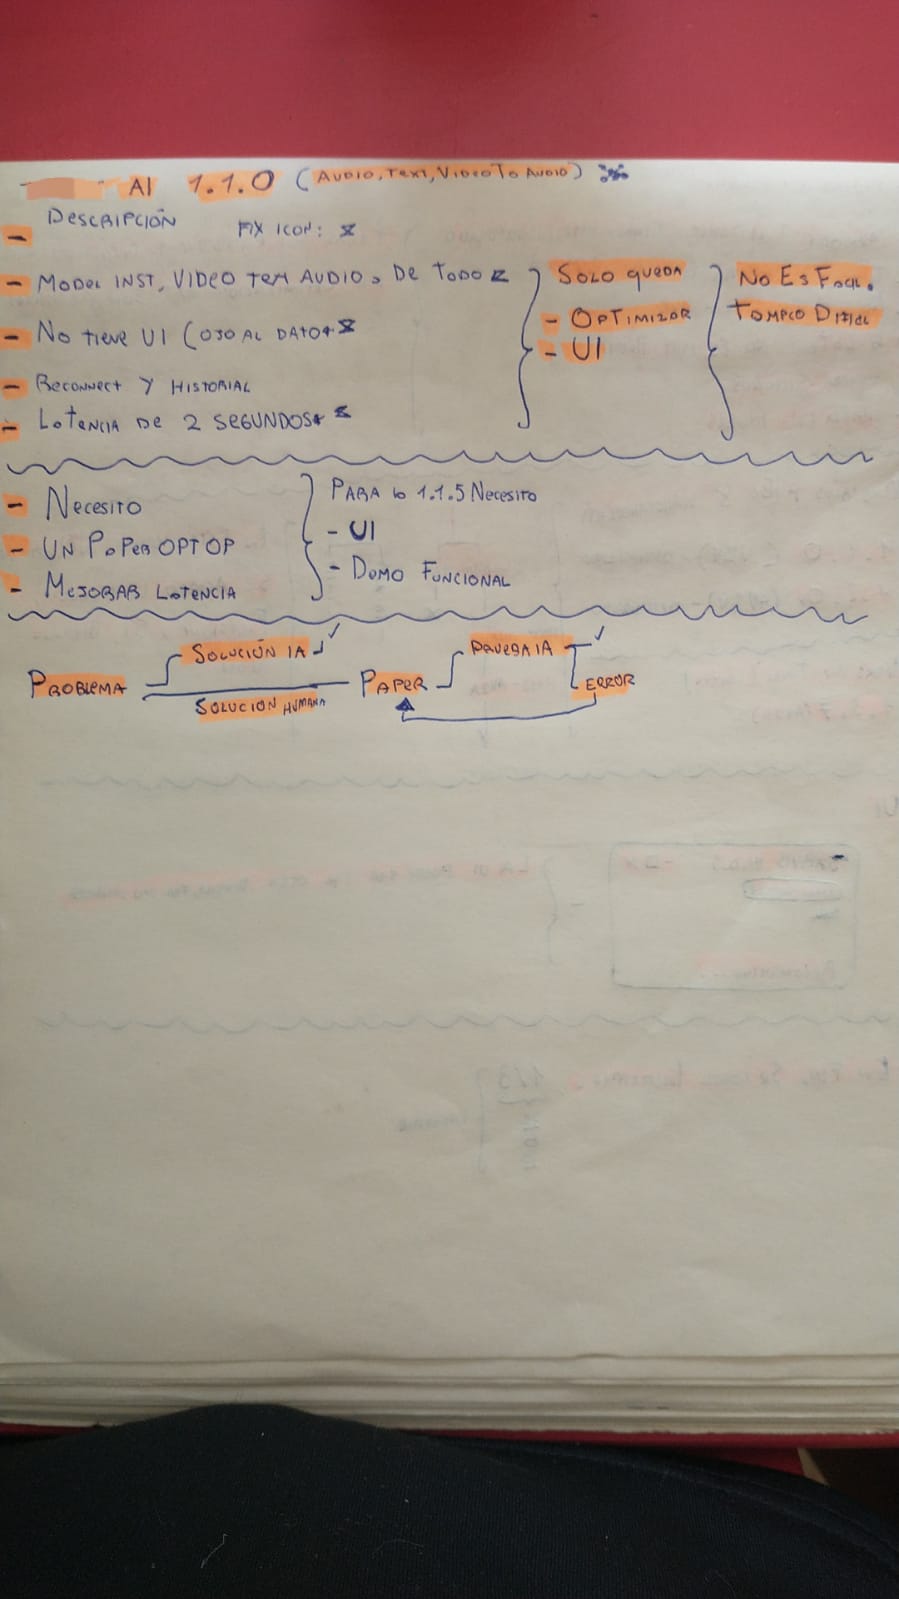 AI 1.1.0 (AUDIO, TEXT, VIDEO TO AUDIO)
- DESCRIPCIÓN FIX ICON:
- MODEL INST, VIDEO TEXT AUDIO, DE TODO
- NO TIENE UI (OJO AL DATO
- RECONNECT Y HISTORIAL
- LATENCIA DE 2 SEGUNDOS
SOLO QUEDA
- OPTIMIZAR
- UI
NO ES FACIL.
TAMPCO DIFICIL
- NECESITO
- UN PAPER OPTOP
- MEJORAR LATENCIA
PARA la 1.1.5 NECESITO
- UI
- DOMO FUNCIONAL
PROBLEMA
SOLUCIÓN IA
SOLUCION HUMANA
PAPER
PRUEBA IA
ERROR